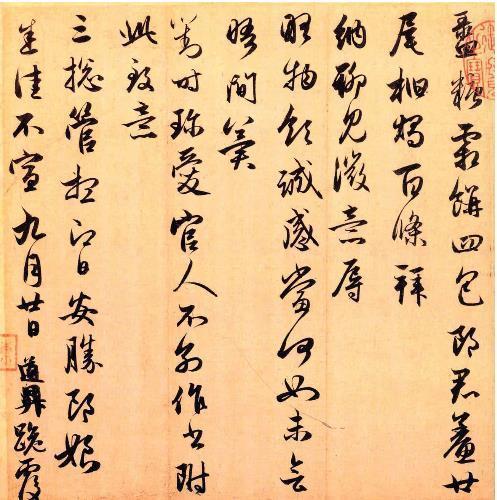 盝糖霜餅四包郎君鯗廿
尾柏燭百條拜
納聊見微意辱
物領誠感當何如未會
晤間冀
對時珍愛官人不別作書附
此致意
三總管想即日安勝郎娘
悉佳不宣九月廿日道昇跪覆